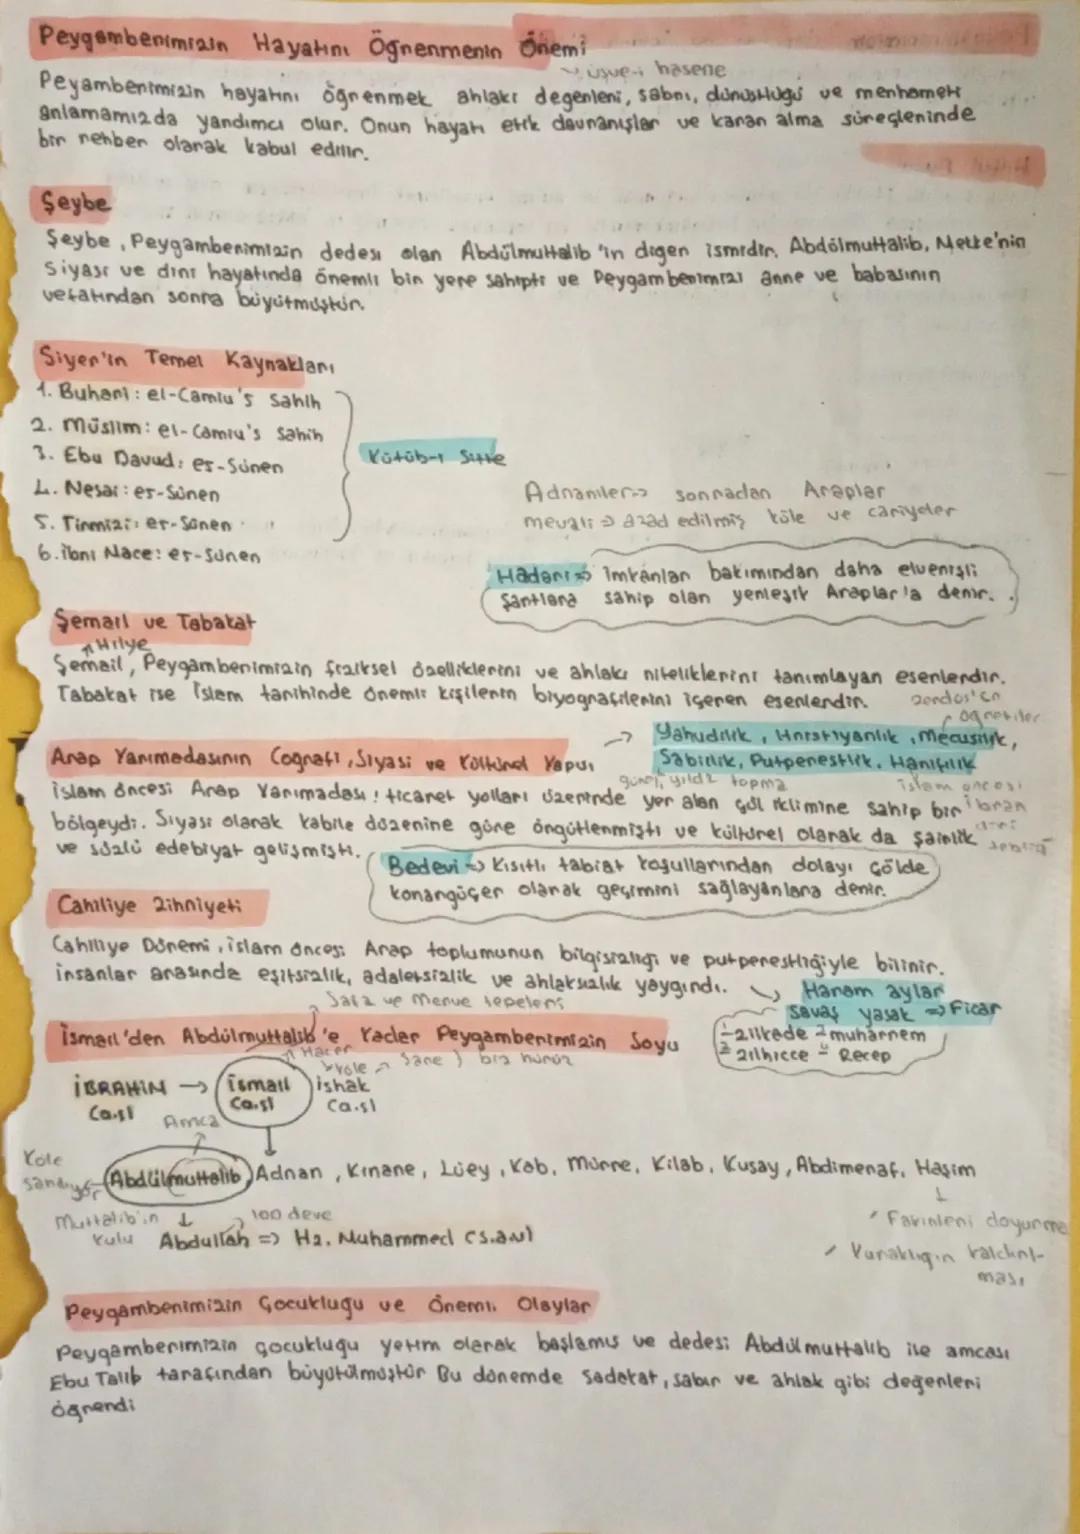 Peygamberimizin Hayatını Öğrenmenin Önemi
üsve-i hasene
Peyamberimizin hayatını öğrenmek ahlaki değerleri, sabrı, dürüstlüğü ve merhameti
anlamamızda yardımcı olur. Onun hayatı etik davranışlar ve karar alma süreçlerinde
bir rehber olarak kabul edilir.
Şeybe
Şeybe, Peygamberimizin dedesi olan Abdülmuttalib'in diğer ismidir. Abdülmuttalib, Mekke'nin
siyasi ve dini hayatında önemli bir yere sahipti ve Peygamberimizi anne ve babasının
vefatından sonra büyütmüştür.
Siyer'in Temel Kaynakları
1. Buhari: el-Camiu's Sahih
2. Müslim: el-Camiu's Sahih
3. Ebu Davud: es-Sünen
4. Nesai: es-Sünen
5. Tirmizi: es-Sünen
6. İbni Mace: es-Sünen
Kütüb-i Sitte
Adnaniler => sonradan Araplar
mevali => azad edilmiş köle ve cariyeler
Hadari => İmkanları bakımından daha elverişli
şartlara sahip olan yerleşik Araplar'a denir.
Şemail ve Tabakat
Hilye
Şemail, Peygamberimizin fiziksel özelliklerini ve ahlaki niteliklerini tanımlayan eserlerdir.
Tabakat ise İslam tarihinde önemli kişilerin biyografilerini içeren eserlerdir.
zerdüş'ün
öğretiler
Yahudilik, Hristiyanlık, Mecusilik,
Arap Yarımadasının Coğrafi, Siyasi ve Kültürel Yapısı
Sabiilik, Putperestlik, Haniflik
güneş, yıldız tapma
islam öncesi
İslam öncesi Arap Yarımadası; ticaret yolları üzerinde yer alan çöl iklimine sahip bir
bölgeydi. Siyasi olarak kabile düzenine göre örgütlenmişti ve kültürel olarak da şairlik
ve sözlü edebiyat gelişmişti.
Bedevi => Kısıtlı tabiat koşullarından dolayı çölde
konargöçer olarak geçimini sağlayanlara denir.
Cahiliye Zihniyeti
Cahiliye Dönemi, islam öncesi Arap toplumunun bilgisizliği ve putperestliğiyle bilinir.
İnsanlar arasında eşitsizlik, adaletsizlik ve ahlaksızlık yaygındı.
Haram aylar
savaş yasak => Ficar
1-zilkade 3-muharrem
2-zilhicce 4-Recep
Safa ve Merve tepeleri
İsmail'den Abdülmuttalib'e Kadar Peygamberimizin Soyu
Hacer
köle
Sare } biz hürüz
İBRAHİM → İsmail İshak
(a.s) (a.s) (a.s)
Amca
Köle
sanılıyor
Abdülmuttalib, Adnan, Kinane, Lüey, Kab, Mürre, Kilab, Kusay, Abdimenaf, Haşim
Muttalib'in
kulu
100 deve
Abdullah => Hz. Muhammed (s.a.v)
Fakirleri doyurma
Kuraklığın kaldırıl-
ması
Peygamberimizin Çocukluğu ve Önemli Olaylar
Peygamberimizin çocukluğu yetim olarak başlamış ve dedesi Abdülmuttalib ile amcası
Ebu Talib tarafından büyütülmüştür Bu dönemde sadakat, sabır ve ahlak gibi değerleri
öğrendi